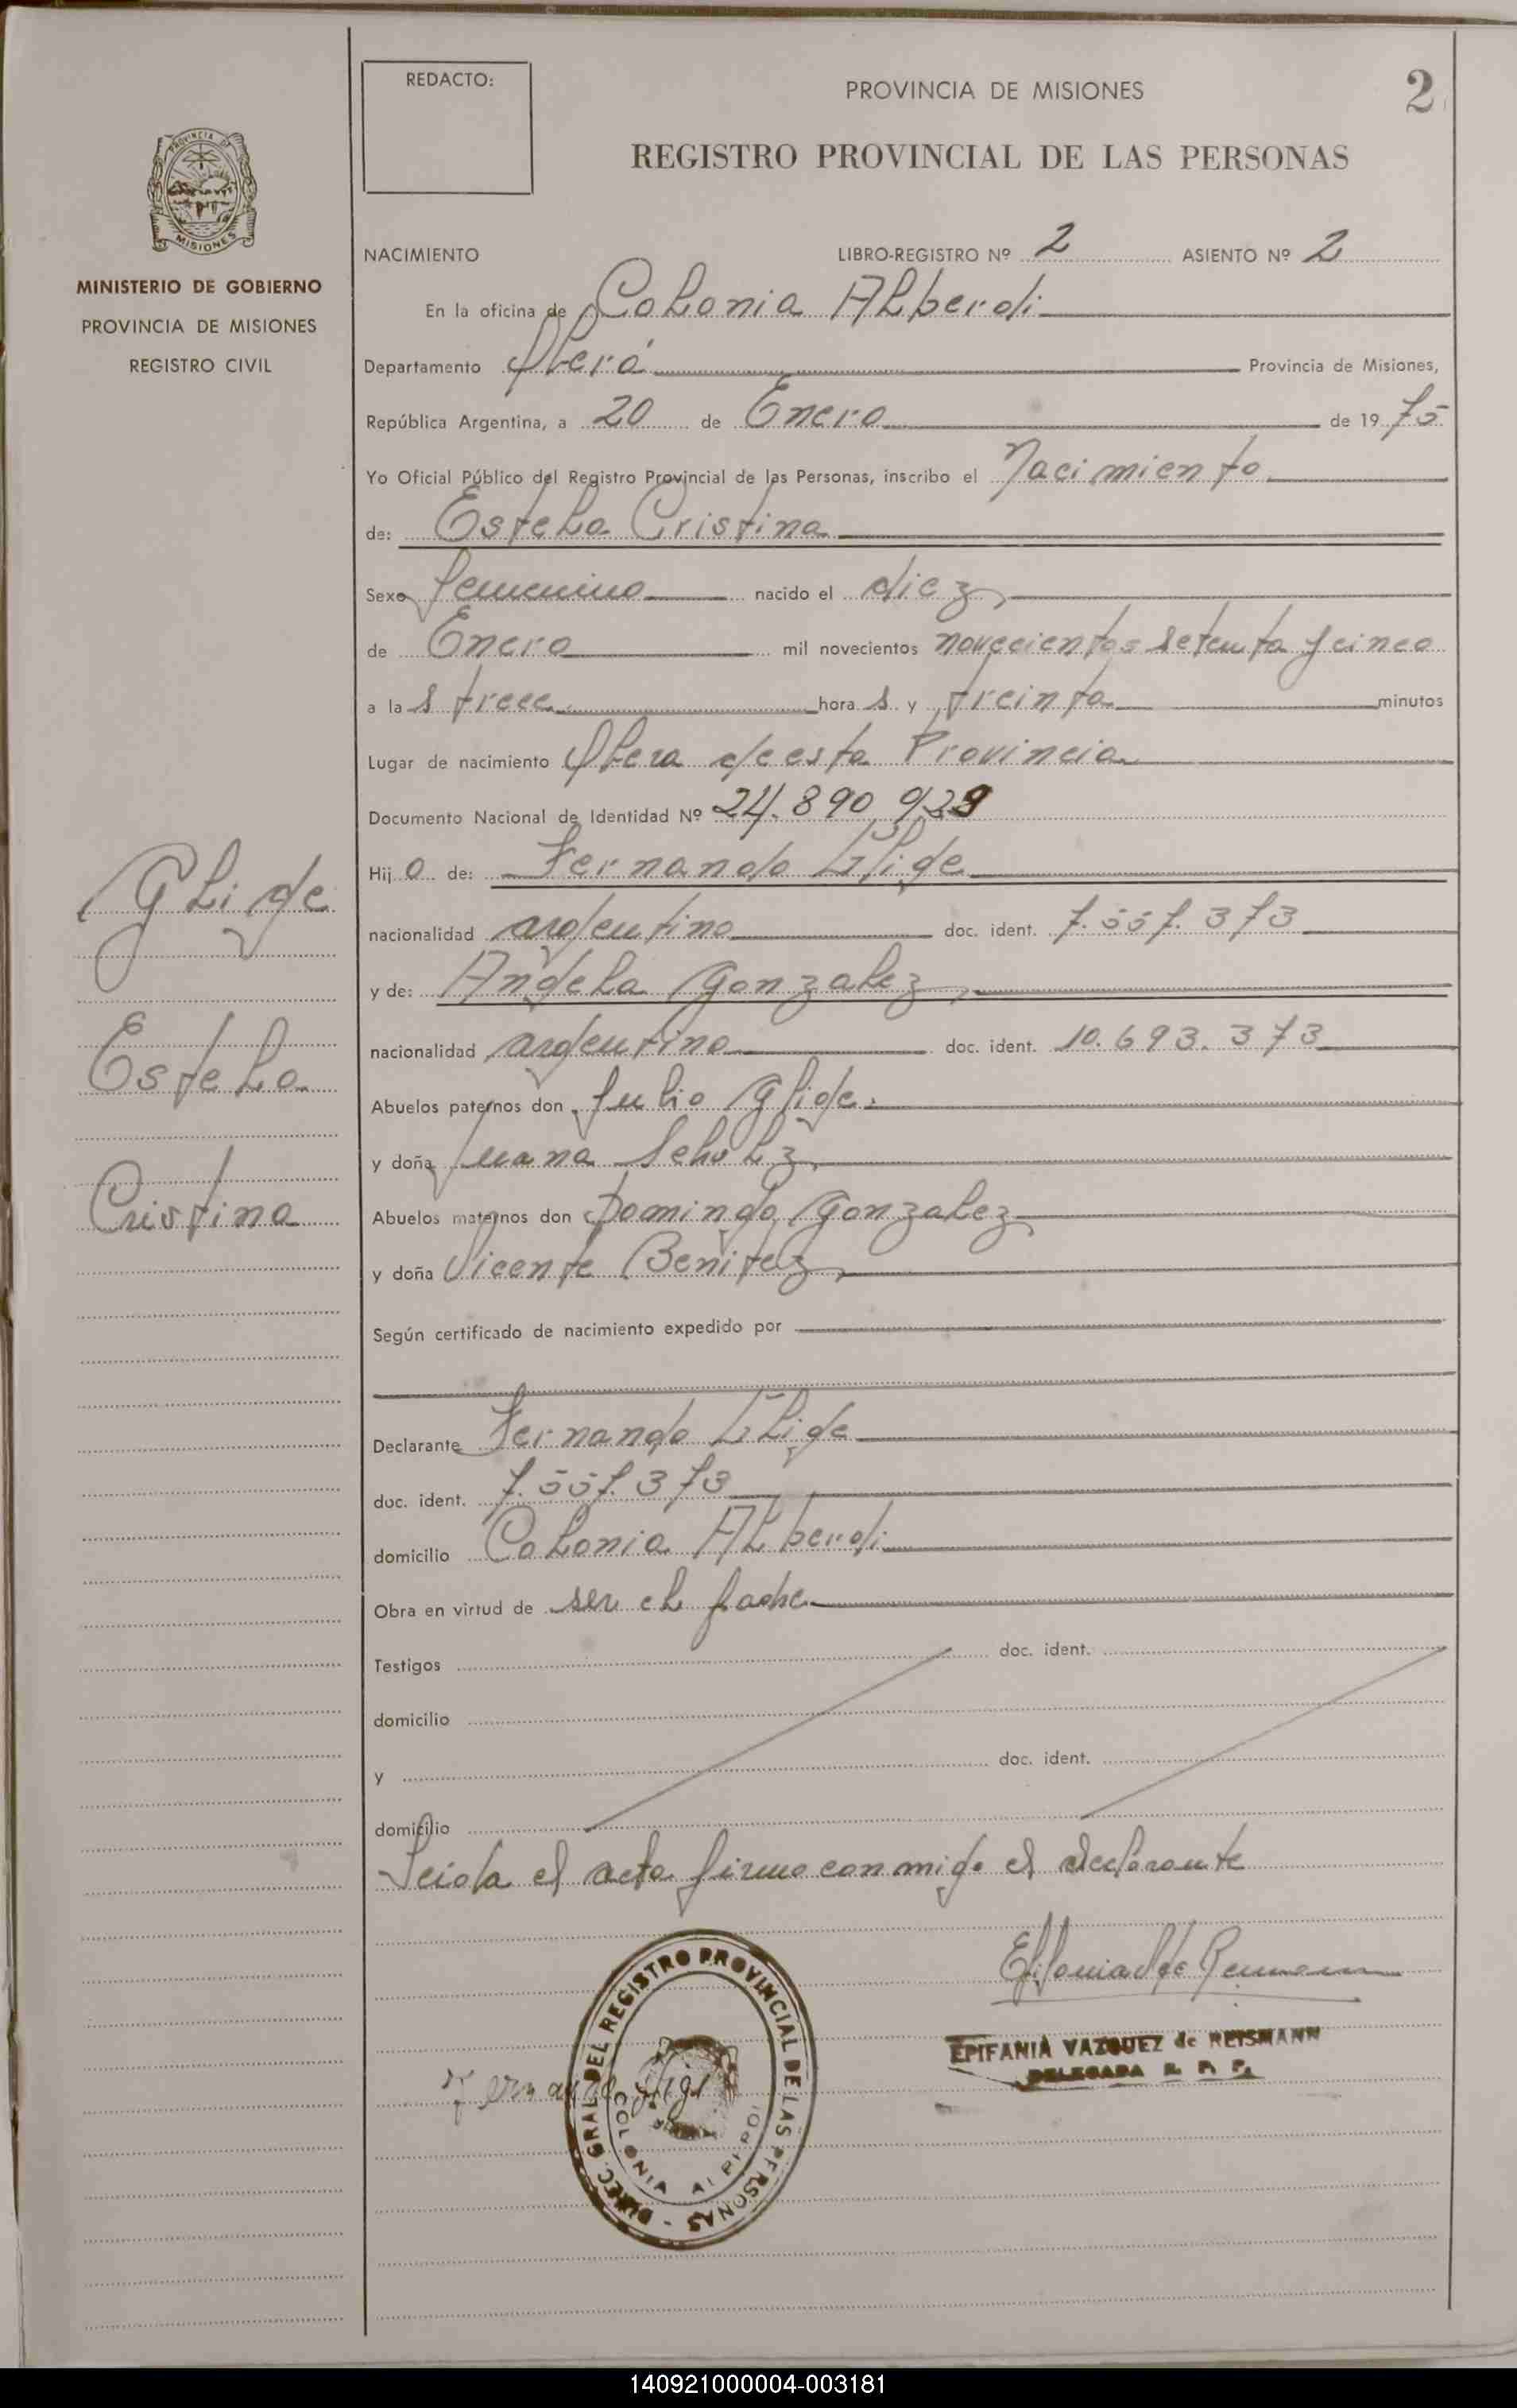 REDACTO:
PROVINCIA DE MISIONES
2
REGISTRO PROVINCIAL DE LAS PERSONAS
PROVINCIA DE
MISIONES
MINISTERIO DE GOBIERNO
PROVINCIA DE MISIONES
REGISTRO CIVIL
NACIMIENTO LIBRO-REGISTRO Nº 2 ASIENTO Nº 2
En la oficina de Colonia Alberdi
Departamento Oberá Provincia de Misiones,
República Argentina, a 20 de Enero de 1975
Yo Oficial Público del Registro Provincial de las Personas, inscribo el Nacimiento
de: Estela Cristina
Sexo femenino nacido el diez
de Enero mil novecientos novecientos setenta y cinco
a las trece horas y treinta minutos
Lugar de nacimiento Obera de esta Provincia
Documento Nacional de Identidad Nº 24.890.929
Hijo de: Fernando Glige
nacionalidad argentino doc. ident. 7.557.373
y de: Angela Gonzalez
nacionalidad argentino doc. ident. 10.693.373
Abuelos paternos don Julio Glige
y doña Juana Scholz
Abuelos maternos don Domingo Gonzalez
y doña Vicente Benitez
Según certificado de nacimiento expedido por
Declarante Fernando Glige
doc. ident. 7.557.373
domicilio Colonia Alberdi
Obra en virtud de ser el padre
Testigos doc. ident.
domicilio
y doc. ident.
domicilio
Leida el acta firma conmigo el declarante
Glige
Estela
Cristina
EPIFANIA VAZQUEZ de REISMANN
DELEGADA R. P. P.
Fernando glige
DIREC. GRAL. DEL REGISTRO PROVINCIAL DE LAS PERSONAS -
COLONIA ALBERDI
140921000004-003181